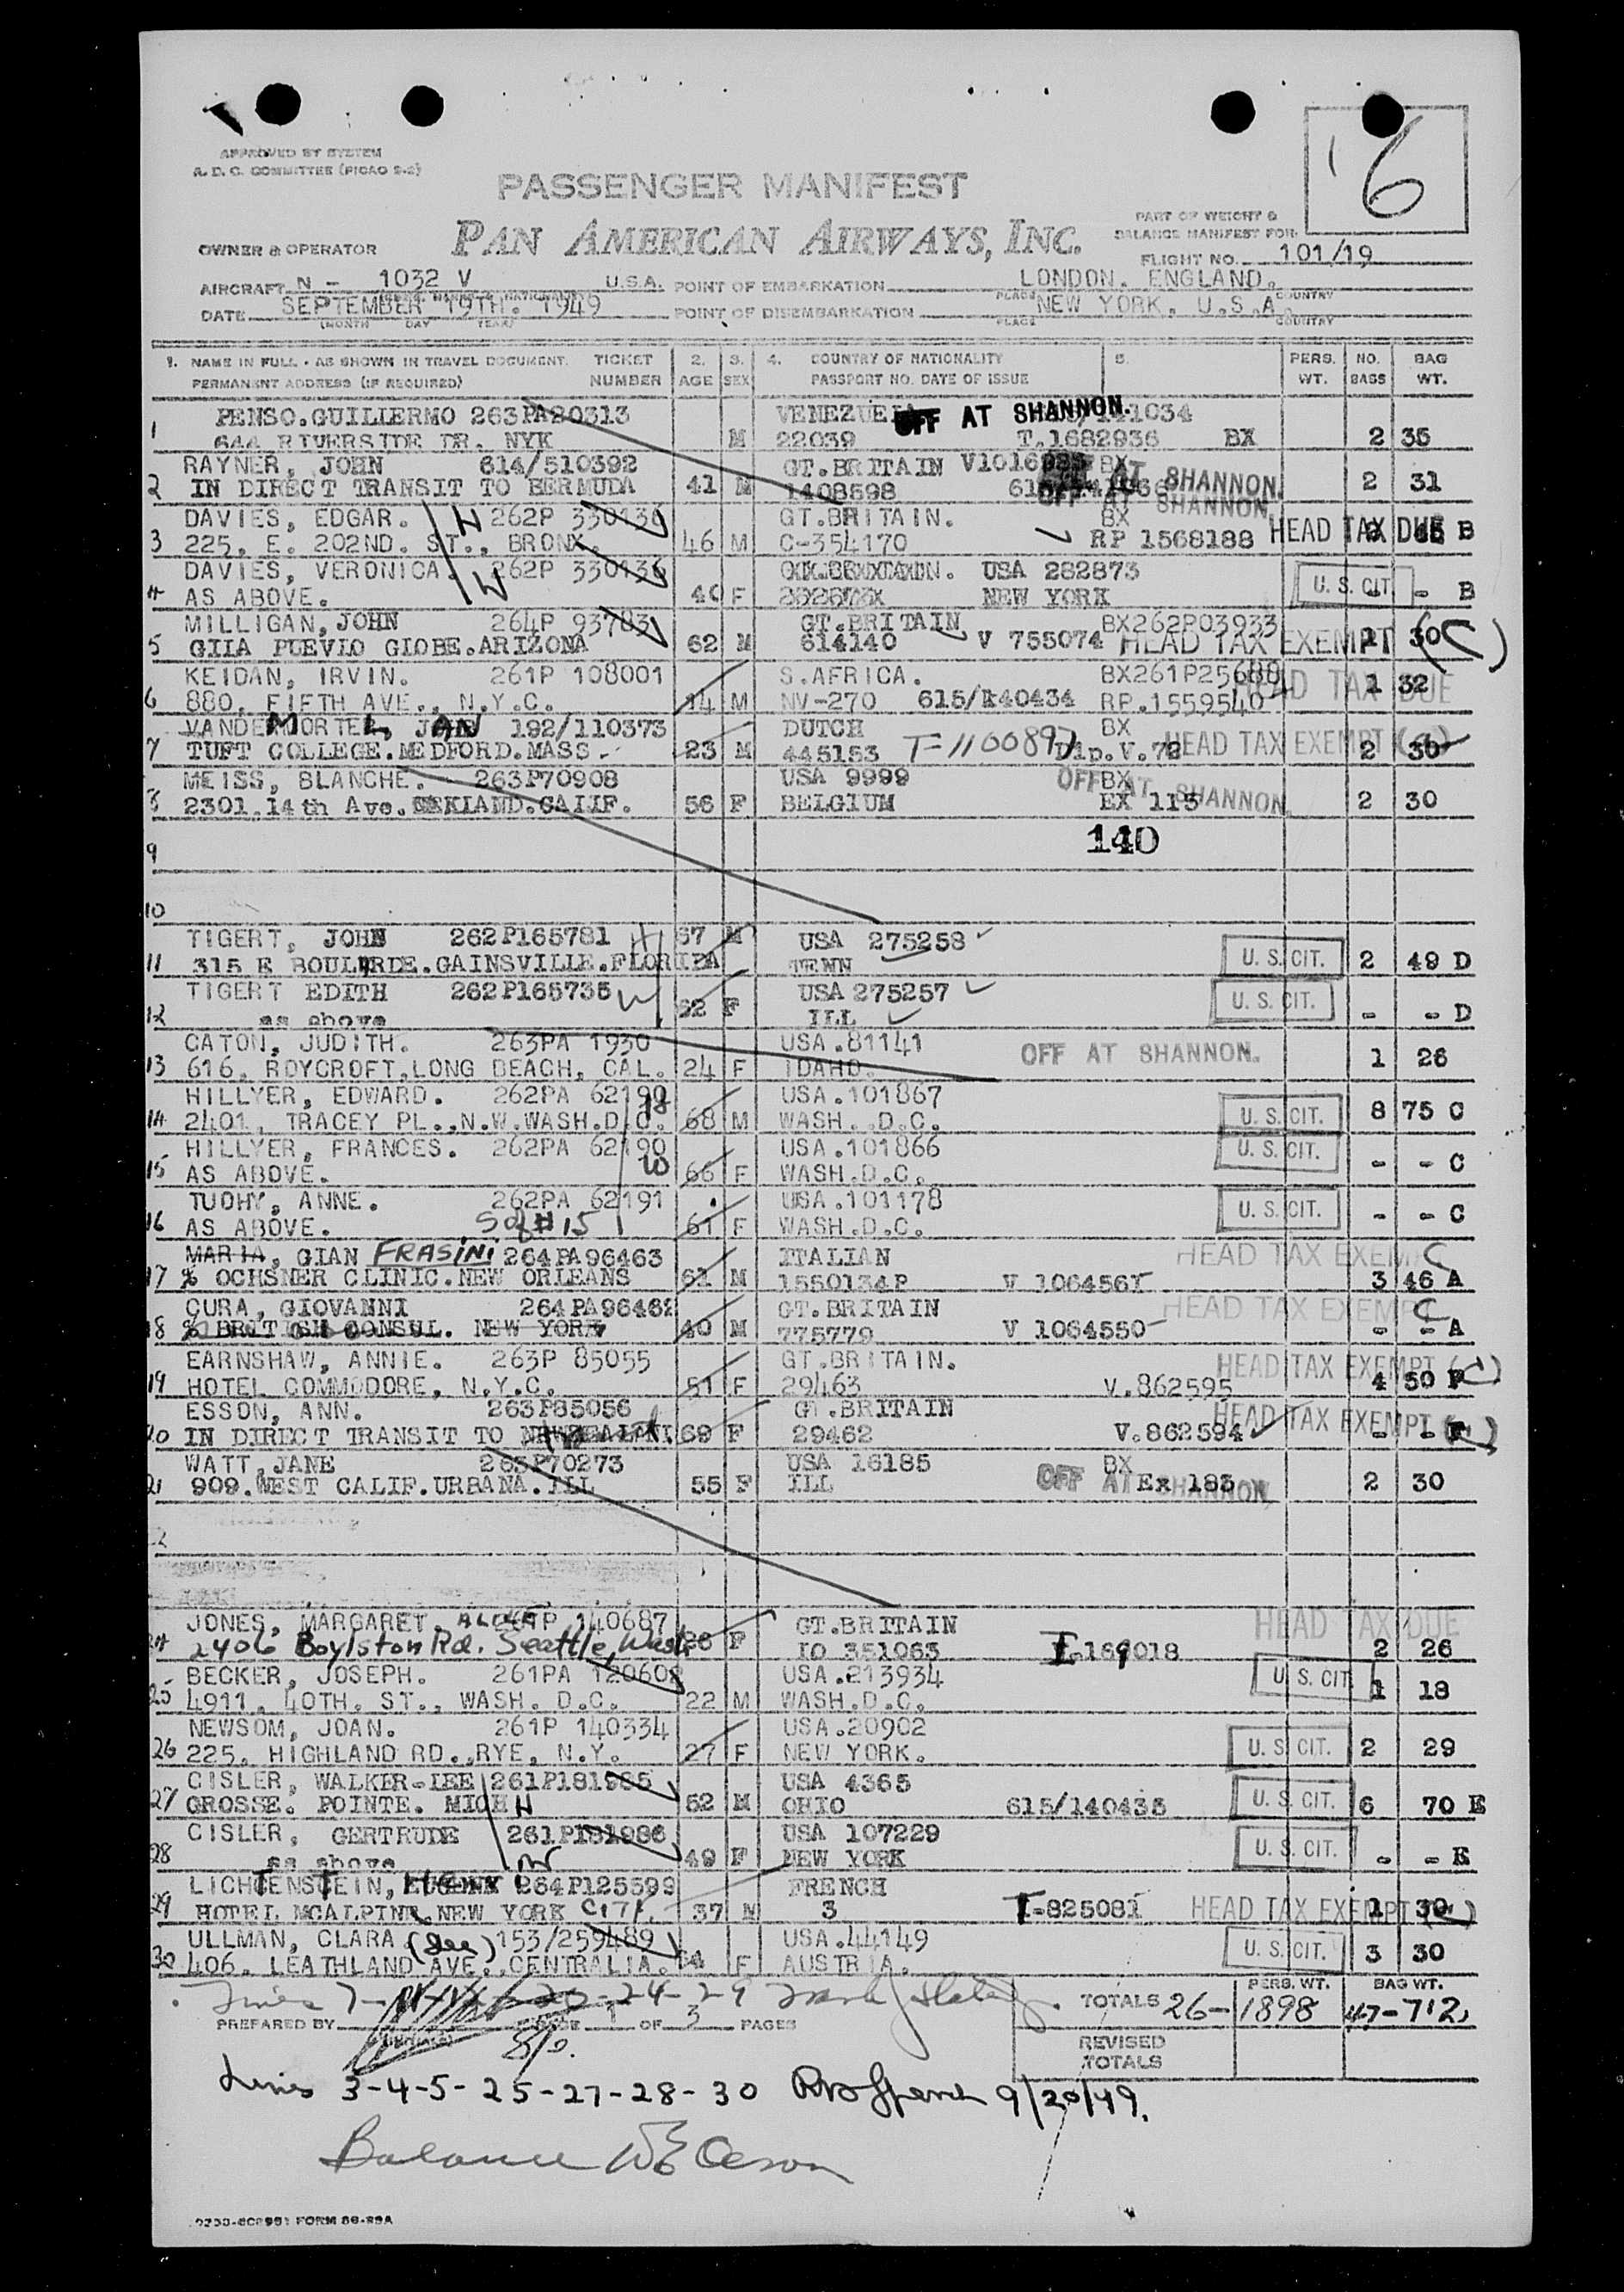 APPROVED BY SYSTEM
A. D. C. COMMITTEE (PICAO 9-2)
16
PASSENGER MANIFEST
PAN AMERICAN AIRWAYS, INC.
PART OF WEIGHT &
BALANCE MANIFEST FOR
OWNER & OPERATOR
FLIGHT NO. 101/19
AIRCRAFT N - 1032 V U.S.A. POINT OF EMBARKATION LONDON, ENGLAND.
DATE SEPTEMBER 19TH. 1949 POINT OF DISEMBARKATION NEW YORK, U.S.A.
(MONTH DAY YEAR) PLACE COUNTRY
1. NAME IN FULL - AS SHOWN IN TRAVEL DOCUMENT. TICKET 2. 3. 4. COUNTRY OF NATIONALITY 5. PERS. NO. BAG
PERMANENT ADDRESS (IF REQUIRED) NUMBER AGE SEX PASSPORT NO. DATE OF ISSUE WT. BAGS WT.
PENSO.GUILLERMO 263PA20313 OFF AT SHANNON.
1 644 RIVERSIDE DR. NYK M 22039 T.1682936 BX 2 35
RAYNER, JOHN 614/510392 GT.BRITAIN BX
2 IN DIRECT TRANSIT TO BERMUDA 41 M 1408598 OFF AT SHANNON. 2 31
DAVIES, EDGAR. H 262P 330136 GT.BRITAIN. BX
3 225, E. 202ND. ST., BRONX. 46 M C-354170 RP 1568188 HEAD TAX DUE B
DAVIES, VERONICA. W 262P 330136 USA 282873
4 AS ABOVE. 40 F NEW YORK U. S. CIT. - - B
MILLIGAN, JOHN 264P 93783 GT.BRITAIN BX262P03933
5 GIIA PUEVLO GIOBE.ARIZONA 62 M 614140 V 755074 HEAD TAX EXEMPT (C) 1 30
KEIDAN, IRVIN. 261P 108001 S.AFRICA. BX261P25688
6 880, FIFTH AVE., N.Y.C. 14 M NV-270 615/140434 RP.1559540 HEAD TAX DUE 1 32
VANDEMORTEL, JAN 192/110373 DUTCH BX
7 TUFT COLLEGE.MEDFORD.MASS 23 M 445153 T-1100897 Dip.V.72 HEAD TAX EXEMPT 2 30
MEISS, BLANCHE. 263P70908 USA 9999 BX
8 2301.14th Ave.OAKIAND.CAIIF. 56 F BELGIUM EX 113 OFF AT SHANNON. 2 30
9 140
10
TIGERT, JOHN 262P165781 H 67 M USA 275258
11 315 E .GAINSVILLE.FLORIDA TENN U. S. CIT. 2 49 D
TIGERT EDITH 262P165735 W USA 275257
12 as above 62 F ILL U. S. CIT. - - D
CATON, JUDITH. 263PA 1930 USA.81141
13 616, ROYCROFT,LONG BEACH, CAL. 24 F IDAHO. OFF AT SHANNON. 1 26
HILLYER, EDWARD. 262PA 62190 USA.101867
14 2401, TRACEY PL.,N.W.WASH.D.C. 68 M WASH.,D.C. U. S. CIT. 8 75 C
HILLYER, FRANCES. 262PA 62190 USA.101866
15 AS ABOVE. W 66 F WASH.D.C. U. S. CIT. - - C
TUOHY, ANNE. 262PA 62191 USA.101178
16 AS ABOVE. 15 61 F WASH.D.C. U. S. CIT. - - C
MARIA, GIAN FRASINI 264PA96463 ITALIAN HEAD TAX EXEMPT C
17 % OCHSNER CLINIC.NEW ORLEANS 61 M 1550134P V 1064561 3 46 A
CURA, GIOVANNI 264PA96462 GT.BRITAIN HEAD TAX EXEMPT C
18 % BRITISH CONSUL. NEW YORK 40 M 775779 V 1064550 - - A
EARNSHAW, ANNIE. 263P 85055 GT.BRITAIN. HEAD TAX EXEMPT (C)
19 HOTEL COMMODORE, N.Y.C. 51 F 29463 V.862595 4 50 F
ESSON, ANN. 263P85056 GT.BRITAIN HEAD TAX EXEMPT (C)
20 IN DIRECT TRANSIT TO 69 F 29462 V.862594 - - F
WATT,JANE 263P70273 USA 16185 BX
21 909.WEST CALIF.URBANA.ILL 55 F ILL OFF AT SHANNON Ex 183 2 30
JONES, MARGARET. 140687 GT.BRITAIN HEAD TAX DUE
24 2406 Boylston Rd. Seattle, Wash 28 F IO 351063 2 26
BECKER, JOSEPH. 261PA 120608 USA.213934
25 4911, 40TH. ST., WASH. D.C. 22 M WASH.D.C. U. S. CIT. 1 18
NEWSOM, JOAN. 261P 140334 USA.20902
26 225, HIGHLAND RD.,RYE, N.Y. 27 F NEW YORK. U. S. CIT. 2 29
CISLER, WALKER-LEE 261P181985 USA 4365
27 GROSSE. POINTE. MICH H 52 M OHIO 615/140435 U. S. CIT. 6 70 E
CISLER, GERTRUDE 261P181986 USA 107229
28 as above W 49 F NEW YORK U. S. CIT. - - E
LICHTENSTEIN, 264P125599 FRENCH
29 HOTEL MCALPINE NEW YORK CITY. 37 M 3 T-825081 HEAD TAX EXEMPT (C) 1 30
ULLMAN, CLARA (See) 153/259489 USA.44149
30 406, LEATHLAND AVE.,CENTRALIA. 54 F AUSTRIA. U. S. CIT. 3 30
Lines 7- -24-29
TOTALS 26- PERS. WT. 1898 BAG WT. 47-712
PREPARED BY PAGE 1 OF 3 PAGES
REVISED
TOTALS
Lines 3-4-5-25-27-28-30 9/20/49.
Balance
FORM 86-99A